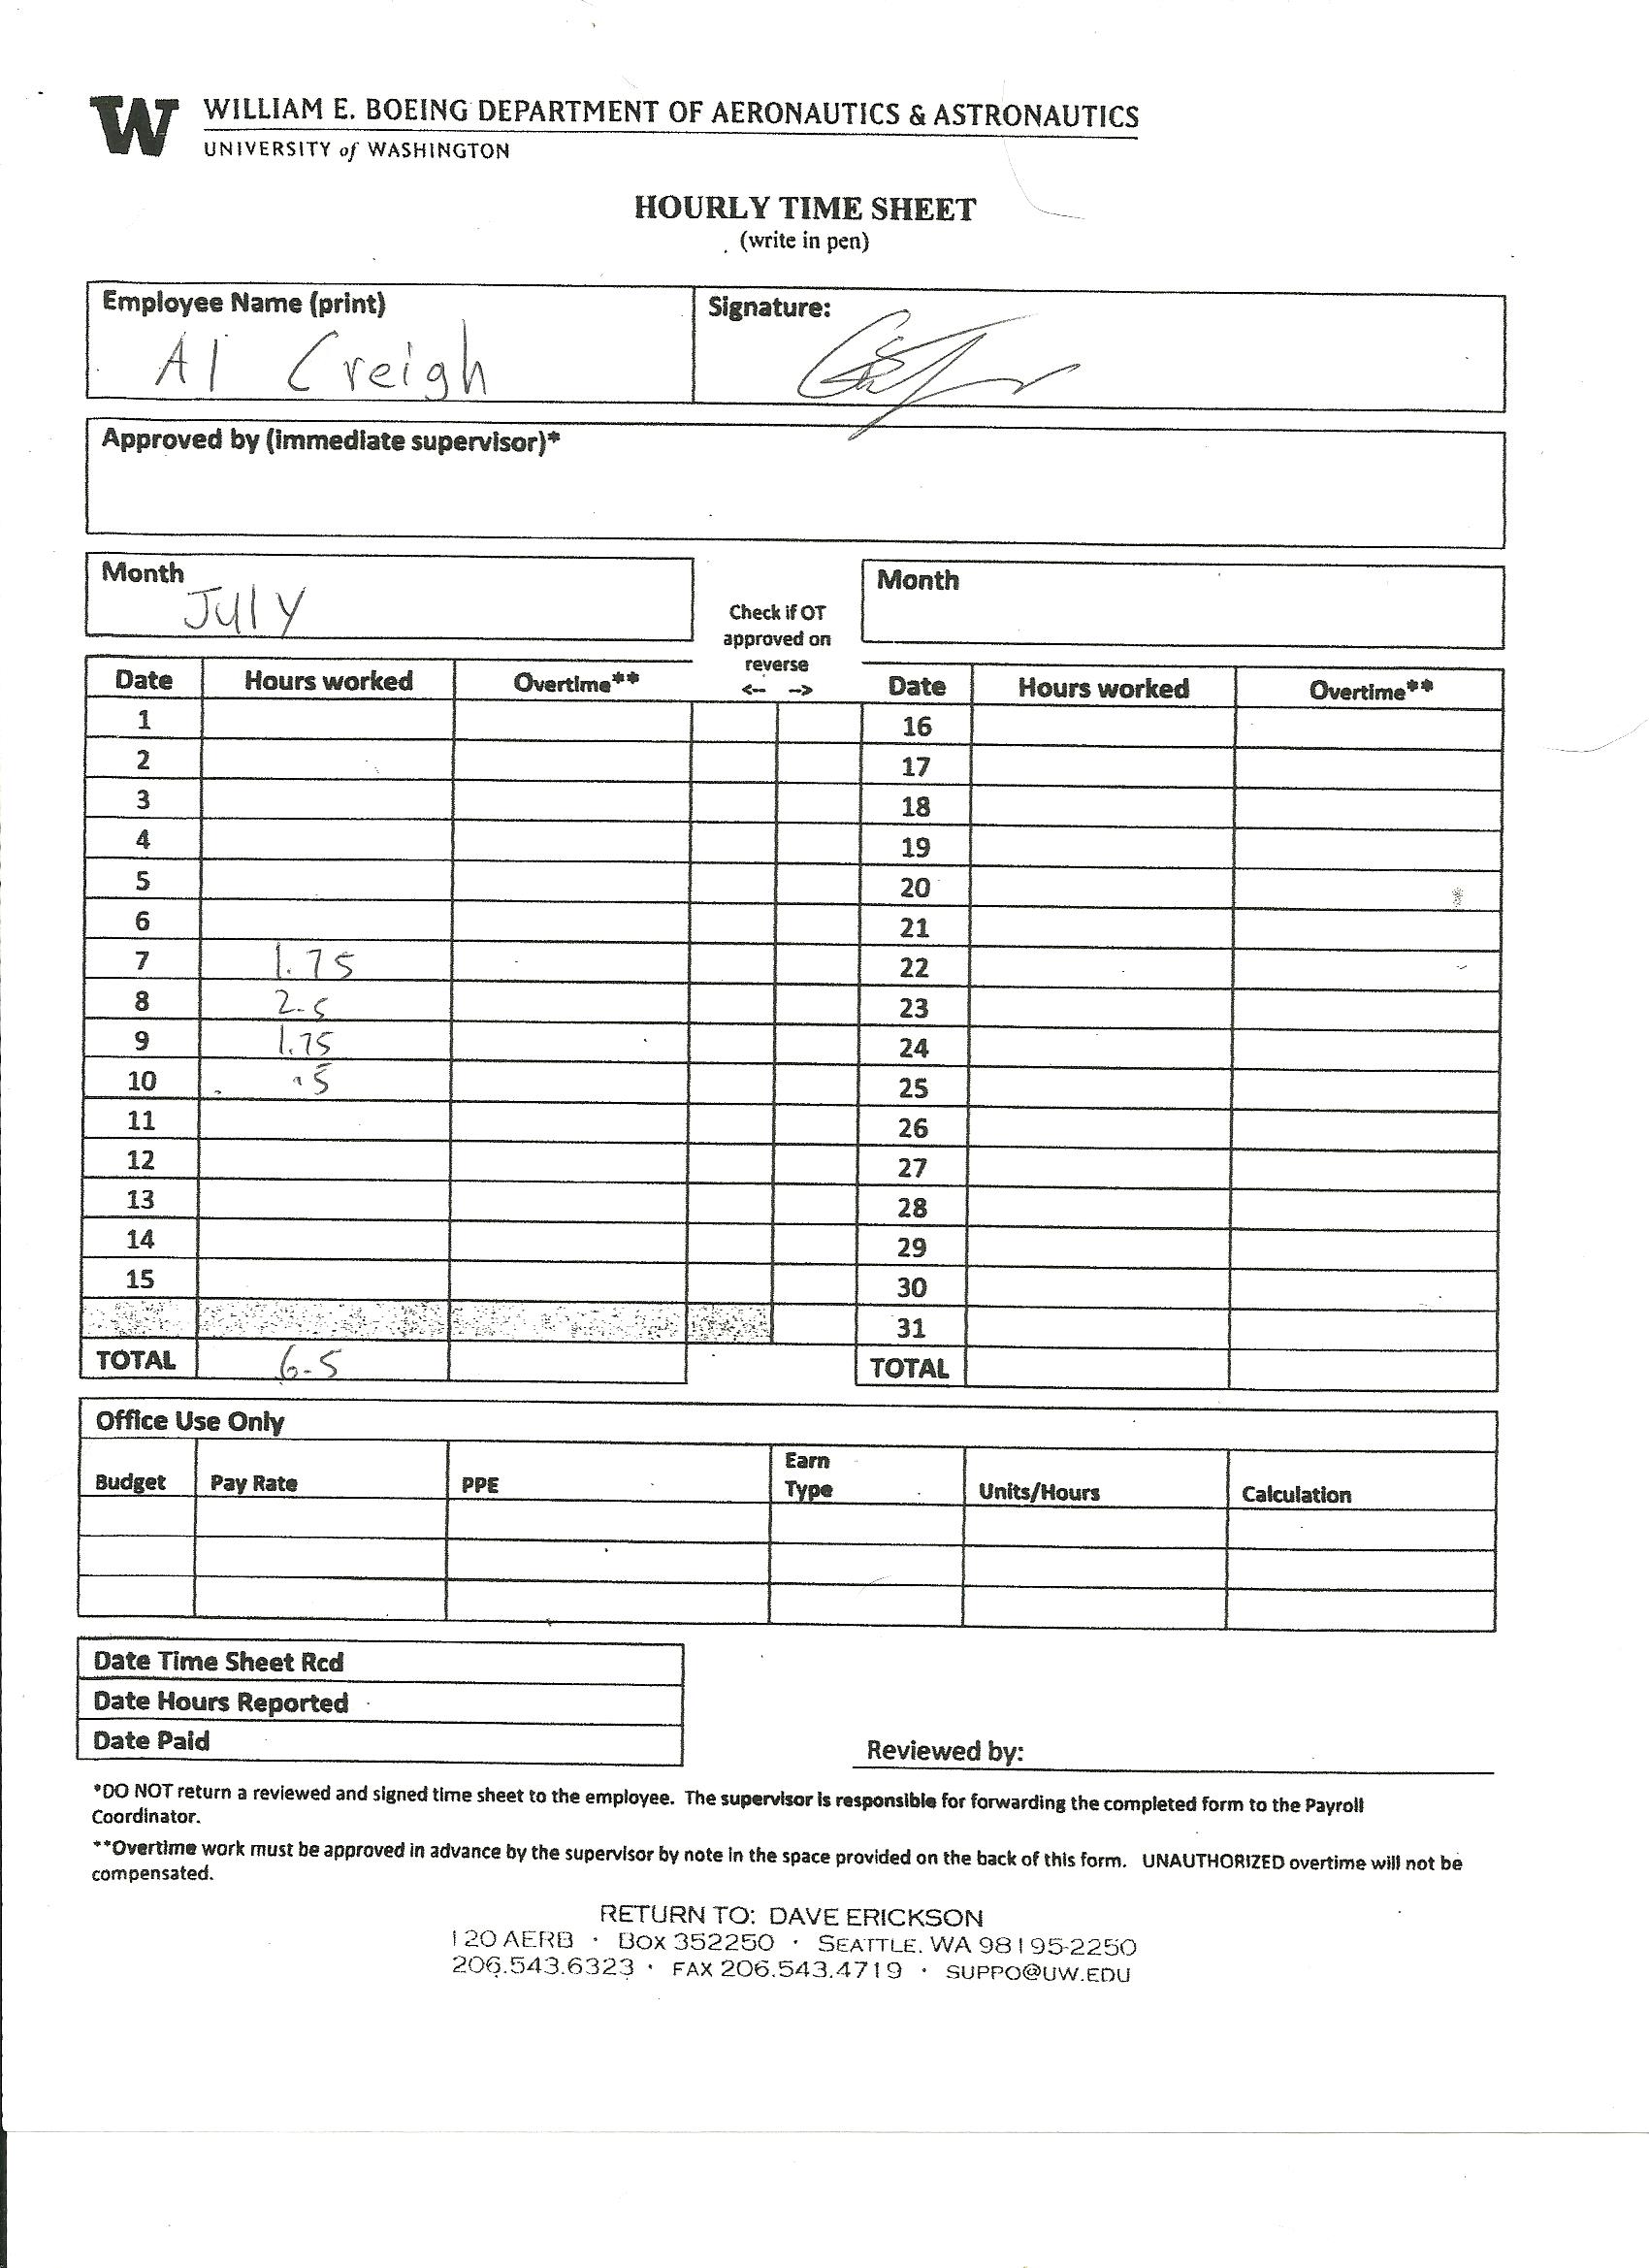 W WILLIAM E. BOEING DEPARTMENT OF AERONAUTICS & ASTRONAUTICS
UNIVERSITY of WASHINGTON
HOURLY TIME SHEET
(write in pen)
Employee Name (print) Signature:
Al Creigh
Approved by (immediate supervisor)*
Month Month
July
Check if OT
approved on
reverse
<-- -->
Date Hours worked Overtime** Date Hours worked Overtime**
1 16
2 17
3 18
4 19
5 20
6 21
7 1.75 22
8 2.5 23
9 1.75 24
10 .5 25
11 26
12 27
13 28
14 29
15 30
31
TOTAL 6.5 TOTAL
Office Use Only
Budget Pay Rate PPE Earn Type Units/Hours Calculation
Date Time Sheet Rcd
Date Hours Reported
Date Paid
Reviewed by:
*DO NOT return a reviewed and signed time sheet to the employee. The supervisor is responsible for forwarding the completed form to the Payroll
Coordinator.
**Overtime work must be approved in advance by the supervisor by note in the space provided on the back of this form. UNAUTHORIZED overtime will not be
compensated.
RETURN TO: DAVE ERICKSON
120 AERB · BOX 352250 · SEATTLE, WA 98195-2250
206.543.6323 · FAX 206.543.4719 · SUPPO@UW.EDU